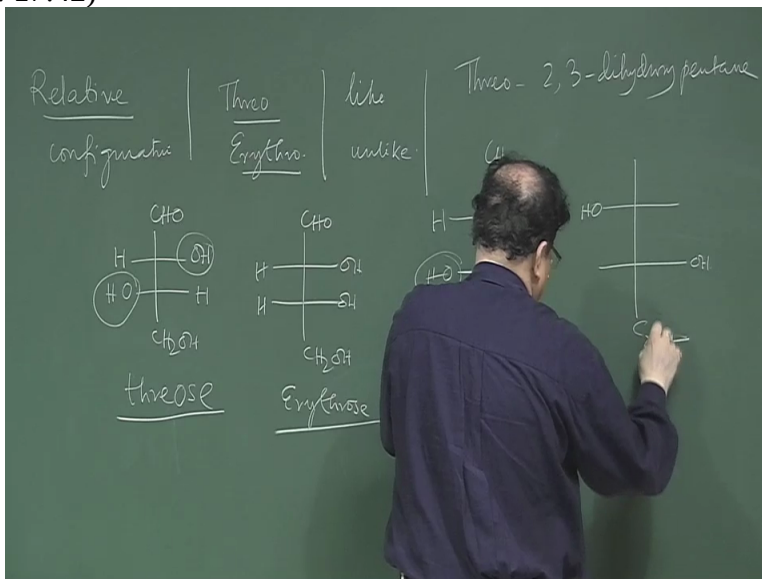 Relative
configuratio
Threo
Erythro.
like
unlike.
Threo - 2,3-dihydroxy pentane
CHO
H OH
HO H
CH2OH
threose
CHO
H OH
H OH
CH2OH
Erythrose
H
HO
HO
OH
C